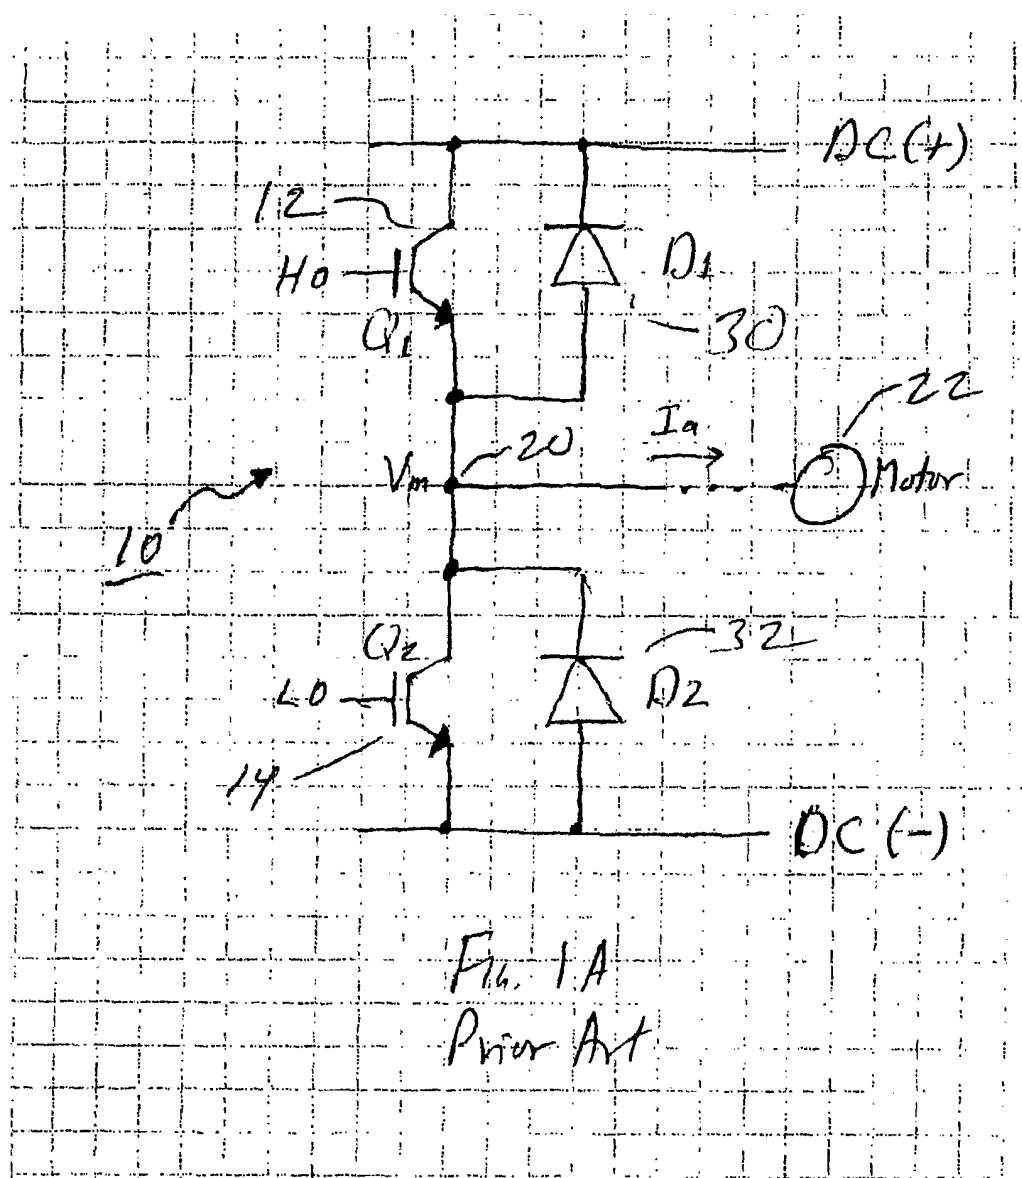 DC(+)
12
HO
D1
Q1
30
22
Ia
20
Vm
Motor
10
Q2
32
LO
D2
14
DC(-)
Fig. 1A
Prior Art